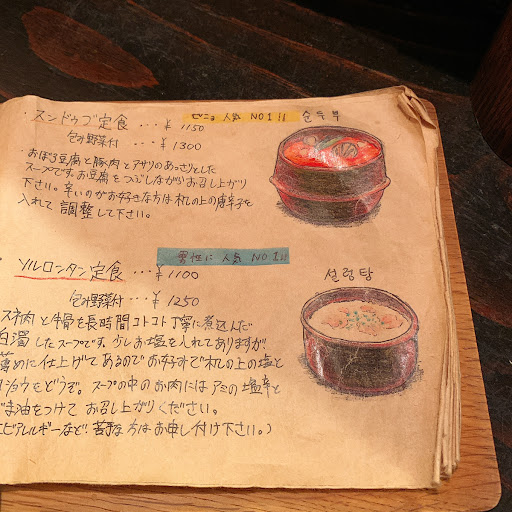 ・スンドゥブ定食 ・・・¥1150
人気 NO1!! 순두부
包み野菜付 ・・・¥1300
おぼろ豆腐と豚肉とアサリのあっさりとした
スープです。お豆腐をつぶしながらお召し上がり
下さい。辛いのがお好きな方は机の上の唐辛子を
入れて調整して下さい。
男性に人気 NO1!!
・ソルロンタン定食・・・¥1100
설렁탕
包み野菜付・・・¥1250
スネ肉と牛骨を長時間コトコト丁寧に煮込んだ
白濁したスープです。少しお塩を入れてありますが
薄めに仕上げてあるのでお好みで机の上の塩と
コショウをどうぞ。スープの中のお肉にはアミの塩辛と
ごま油をつけてお召し上がりください。
エビアレルギーなど、苦手な方はお申し付け下さい。)